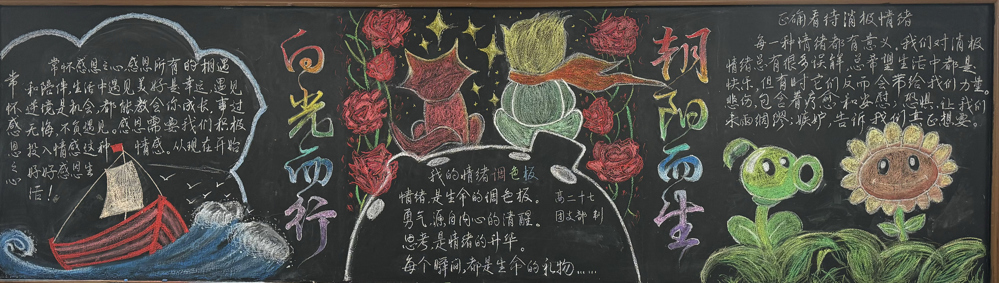 常怀感恩之心
常怀感恩之心,感恩所有的相遇
和陪伴,生活中遇见美好是幸运,遇见
逆境是机会,都能教会你成长,事过
无悔,不负遇见。感恩需要我们积极
投入情感这种 情感。从现在开始
好好感恩生
活!
向光而行
我的情绪调色板
情绪,是生命的调色板。
勇气,源自内心的清醒。
思考,是情绪的升华。
每个瞬间,都是生命的礼物……
高二十七
团支部 制
朝阳而生
正确看待消极情绪
每一种情绪都有意义,我们对消极
情绪总有很多误解,总希望生活中都是
快乐,但有时它们反而会带给我们力量。
悲伤,包含着疗愈和安慰;恐惧,让我们
未雨绸缪;嫉妒,告诉我们真正想要。